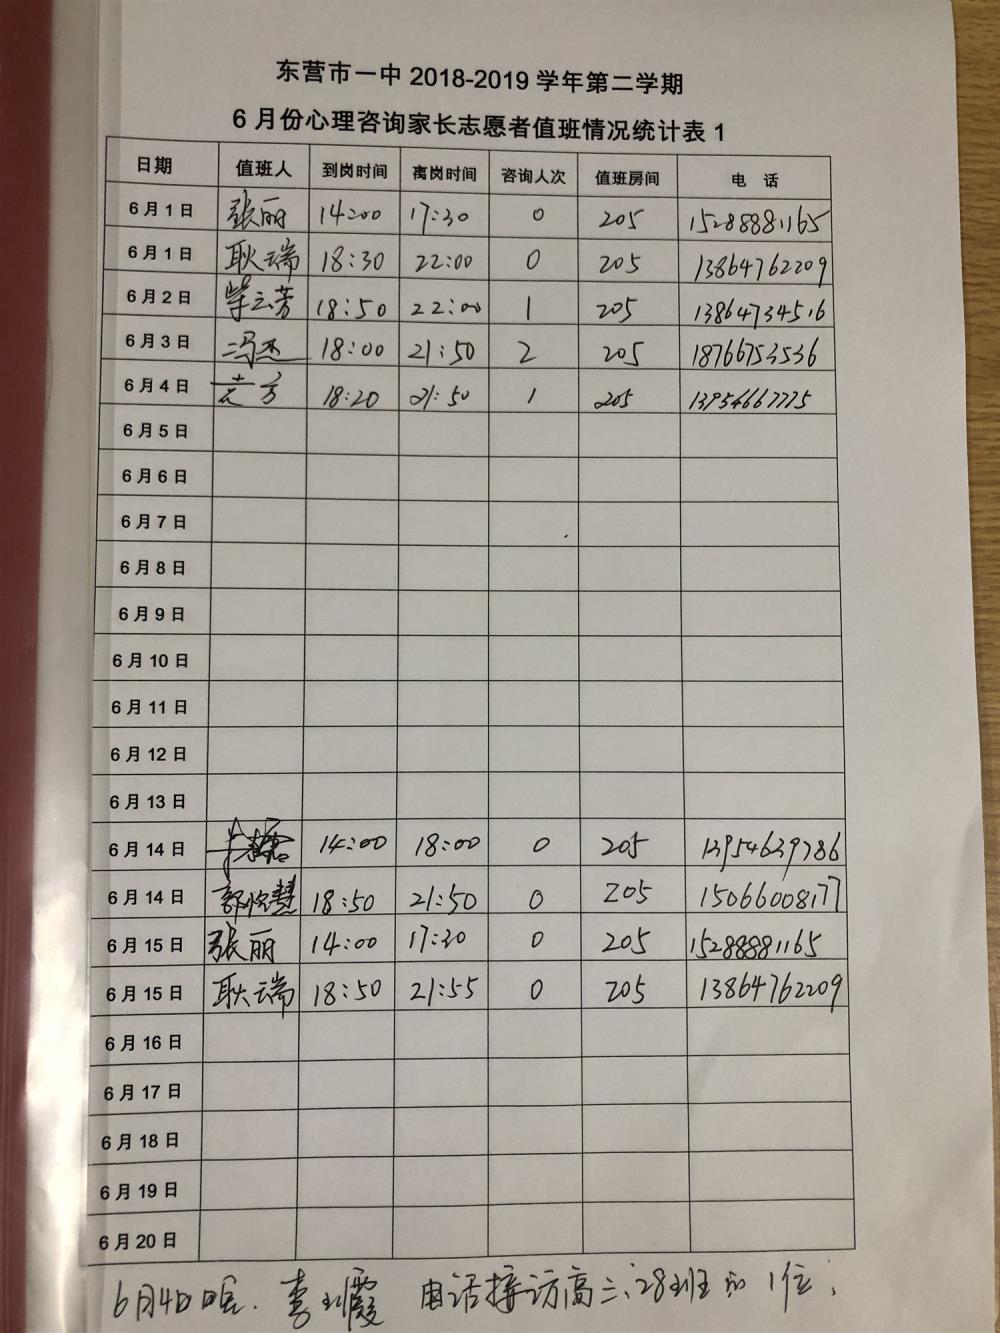 东营市一中 2018-2019 学年第二学期
6 月份心理咨询家长志愿者值班情况统计表 1
日期 值班人 到岗时间 离岗时间 咨询人次 值班房间 电 话
6 月 1 日 张丽 14:00 17:30 0 205 15288881165
6 月 1 日 耿瑞 18:30 22:00 0 205 13864762209
6 月 2 日 柴云芳 18:50 22:00 1 205 13864734516
6 月 3 日 冯杰 18:00 21:50 2 205 18766753536
6 月 4 日 方 18:20 21:50 1 205 13954667775
6 月 5 日
6 月 6 日
6 月 7 日
6 月 8 日
6 月 9 日
6 月 10 日
6 月 11 日
6 月 12 日
6 月 13 日
6 月 14 日 14:00 18:00 0 205 13954639786
6 月 14 日 郭悦慧 18:50 21:50 0 205 15066008177
6 月 15 日 张丽 14:00 17:30 0 205 15288881165
6 月 15 日 耿瑞 18:50 21:55 0 205 13864762209
6 月 16 日
6 月 17 日
6 月 18 日
6 月 19 日
6 月 20 日
6月4日晚. 李霞 电话接访高三、28班的1位.